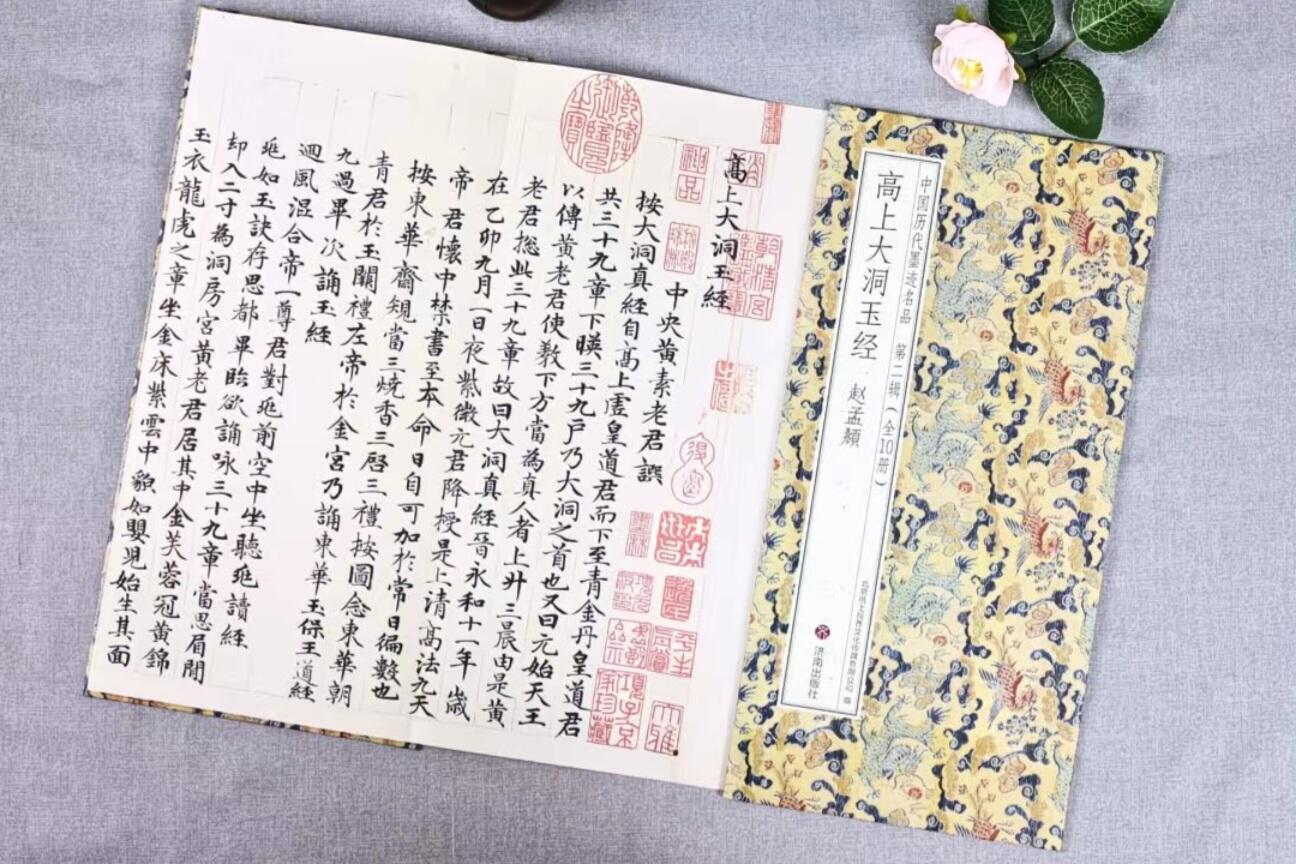 高上大洞玉經
中央黃素老君譔
按大洞真經自高上虛皇道君而下至青金丹皇道君
共三十九章下暎三十九戶乃大洞之首也又曰元始天王
以傳黃老君使教下方當為真人者上升三晨由是黃
老君揔此三十九章故曰大洞真經晉永和十一年歲
在乙卯九月一日夜紫微元君降授是上清高法九天
帝君懷中禁書至本命日自可加於常日徧數也
按東華齋規當三燒香三啓三禮按圖念東華朝
青君於玉闕禮左帝於金宮乃誦東華玉保王道經
九過畢次誦玉經
迴風混合帝一尊君對兆前空中坐聽兆讀經
兆如玉訣存思都畢臨欲誦咏三十九章當思眉間
却入二寸為洞房宮黃老君居其中金芙蓉冠黃錦
玉衣龍虎之章坐金床紫雲中貌如嬰兒始生其面
乾隆御覽之寶
神品
乾清宮鑒藏寶
項子京家珍藏
大雅
中国历代墨迹名品 第二辑（全10册）
高上大洞玉经 赵孟頫
济南出版社